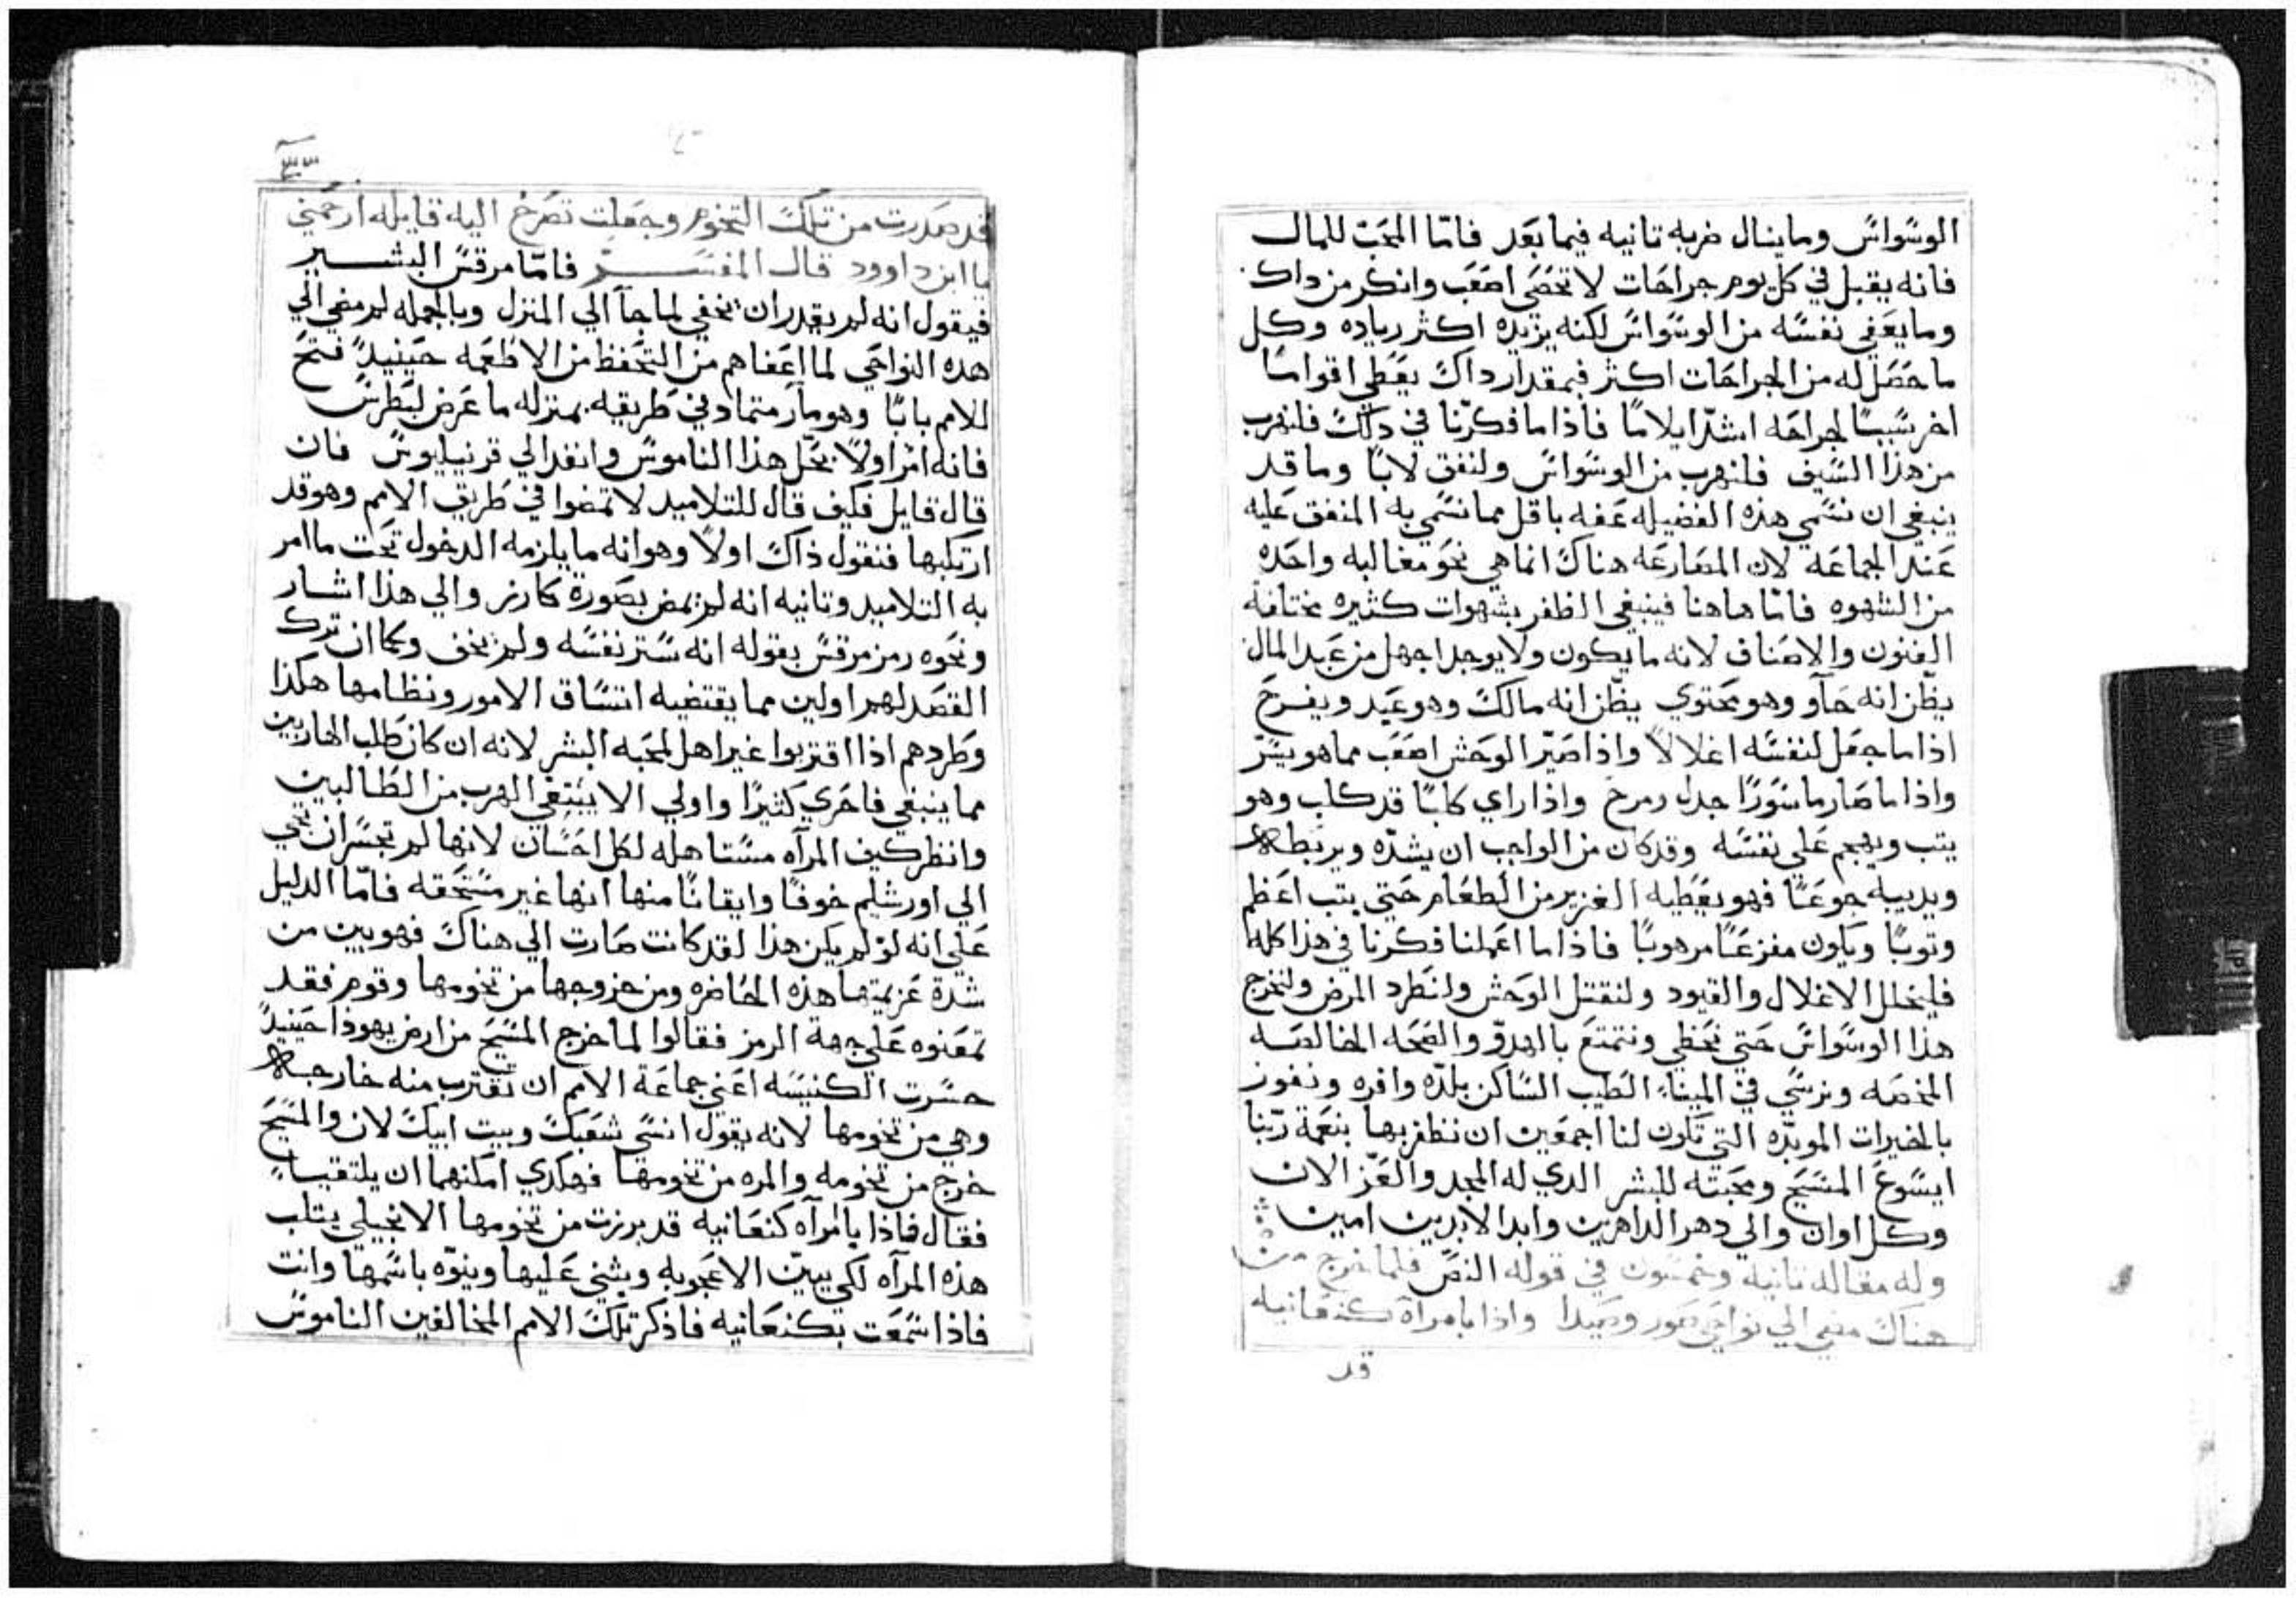 الوسواس وما ينال ضربه تانيه فيما بعد فامّا المحبّ للمال
فانه يقبل في كل يوم جراحات لا تحصى اصعب وانكر من داك
وما يعفي نفسه من الوسواس لكنه يزيده اكثر زياده وكل
ما حصل له من الجراحات اكثر فبمقدار داك يعطي اقواسًا
اخر سببًا لجراحه اشدّ ايلامًا فاذا ما فكرّنا في دلك فلنهرب
من هذا السيف فلنهرب من الوسواس ولنفق لابًا وما قد
ينبغي ان نسمي هذه الفضيله عفه باقل مما نسمي به المنفق عليه
عند الجماعه لان المصارعه هناك انما هي نحو مغالبه واحده
من الشهوه فامّا هاهنا فينبغي الظفر بشهوات كثيره مختلفة
الفنون والاصناف لانه ما يكون ولا يوجد اجهل من عبد المال
يظن انه حاو وهو محتوي يظن انه مالك وهو عبد ويفرح
اذا ما جعل لنفسه اغلالاً واذا صيّر الوحش اصعب مما هو يسرّ
واذا ما صار ماسورًا جدل ومرح واذا راي كلبًا قد كلب وهو
يتب ويهجم علي نفسه وقد كان من الواجب ان يشدّه ويربطه
ويديبه جوعًا فهو يعطيه الغزير من الطعام حتي يتب اعظم
وتوبًا ويكون مفزعًا مرهوبًا فاذا ما اعملنا فكرنا في هذا كله
فلنحلل الاغلال والقيود ولنقتل الوحش ولنطرد المرض ولنخرج
هذا الوسواس حتي نحظي ونتمتع بالهدوّ والصحه الخالصه
المخصه ونرسي في الميناء الطيب الساكن بلدّه وافره ونفوز
بالخيرات الموبدّه التي تكون لنا اجمعين ان نظفر بها بنعمة ربّنا
ايسوع المسيح ومحبته للبشر الدي له المجد والعزّ الان
وكل اوان والي دهر الداهرين وابد الابدين امين
وله مقاله تانيه وخمسون في قوله النص فلما خرج من
هناك مضي الي نواحي صور وصيدا واذا بامراة كنعانيه
قد
٣٣
قد صدرت من تلك التخوم وجعلت تصرخ اليه قايله ارحمني
يا ابن داوود قال المفسر فامّا مرقس البشير
فيقول انه لم يقدر ان يخفي لما جآ الي المنزل وبالجمله لم مضي الي
هده النواحي لما اعفاهم من التحفظ من الاطعمه حينيدٍ فتح
للامم بابًا وهو مار متماد في طريقه بمنزله ما عرض لبطرس
فانه امر اولاً بحّل هذا الناموس وانفد الي قرنيليوس فان
قال قايل فكيف قال للتلاميد لا تمضوا في طريق الامم وهو قد
ارتكبها فنقول ذاك اولاً وهو انه ما يلزمه الدخول تحت ما امر
به التلاميد وتانيه انه لم يمض بصورة كارز والي هذا اشار
ونحوه رمز مرقس بقوله انه ستر نفسه ولم يخف وكما ان ترك
القصد لهم اولين مما يقتضيه اتساق الامور ونظامها هكذا
وطردهم اذا اقتربوا غير اهل لمحبه البشر لانه ان كان طلب الهاربين
مما ينبغي فاحري كثيرًا واولي الا يبتغي الهرب من الطالبين
وانظر كيف المرآه مستاهله لكل احسان لانها لم تجسر ان تجي
الي اورشليم خوفًا وايقانًا منها انها غير مستحقه فامّا الدليل
علي انه لو لم يكن هذا لقد كانت صارت الي هناك فهو بين من
شدة عزيمتها هذه الحاضره ومن خروجها من تخومها وقوم فقد
تمعنوه علي جهة الرمز فقالوا لما خرج المسيح من ارض يهوذا حينيدٍ
حسرت الكنيسه اعني جماعة الامم ان تقترب منه خارجه
وهي من تخومها لانه يقول انسي شعبك وبيت ابيك لان والمسيح
خرج من تخومه والمره من تخومها فهكدي امكنهما ان يلتقيا
فقال فاذا بالمرآه كنعانيه قد برزت من تخومها الانجيلي يتلب
هذه المرآه لكي يبيّن الاعجوبه ويثني عليها وينوّه باسمها وانت
فاذا سمعت بكنعانيه فاذكر تلك الامم المخالفين الناموس